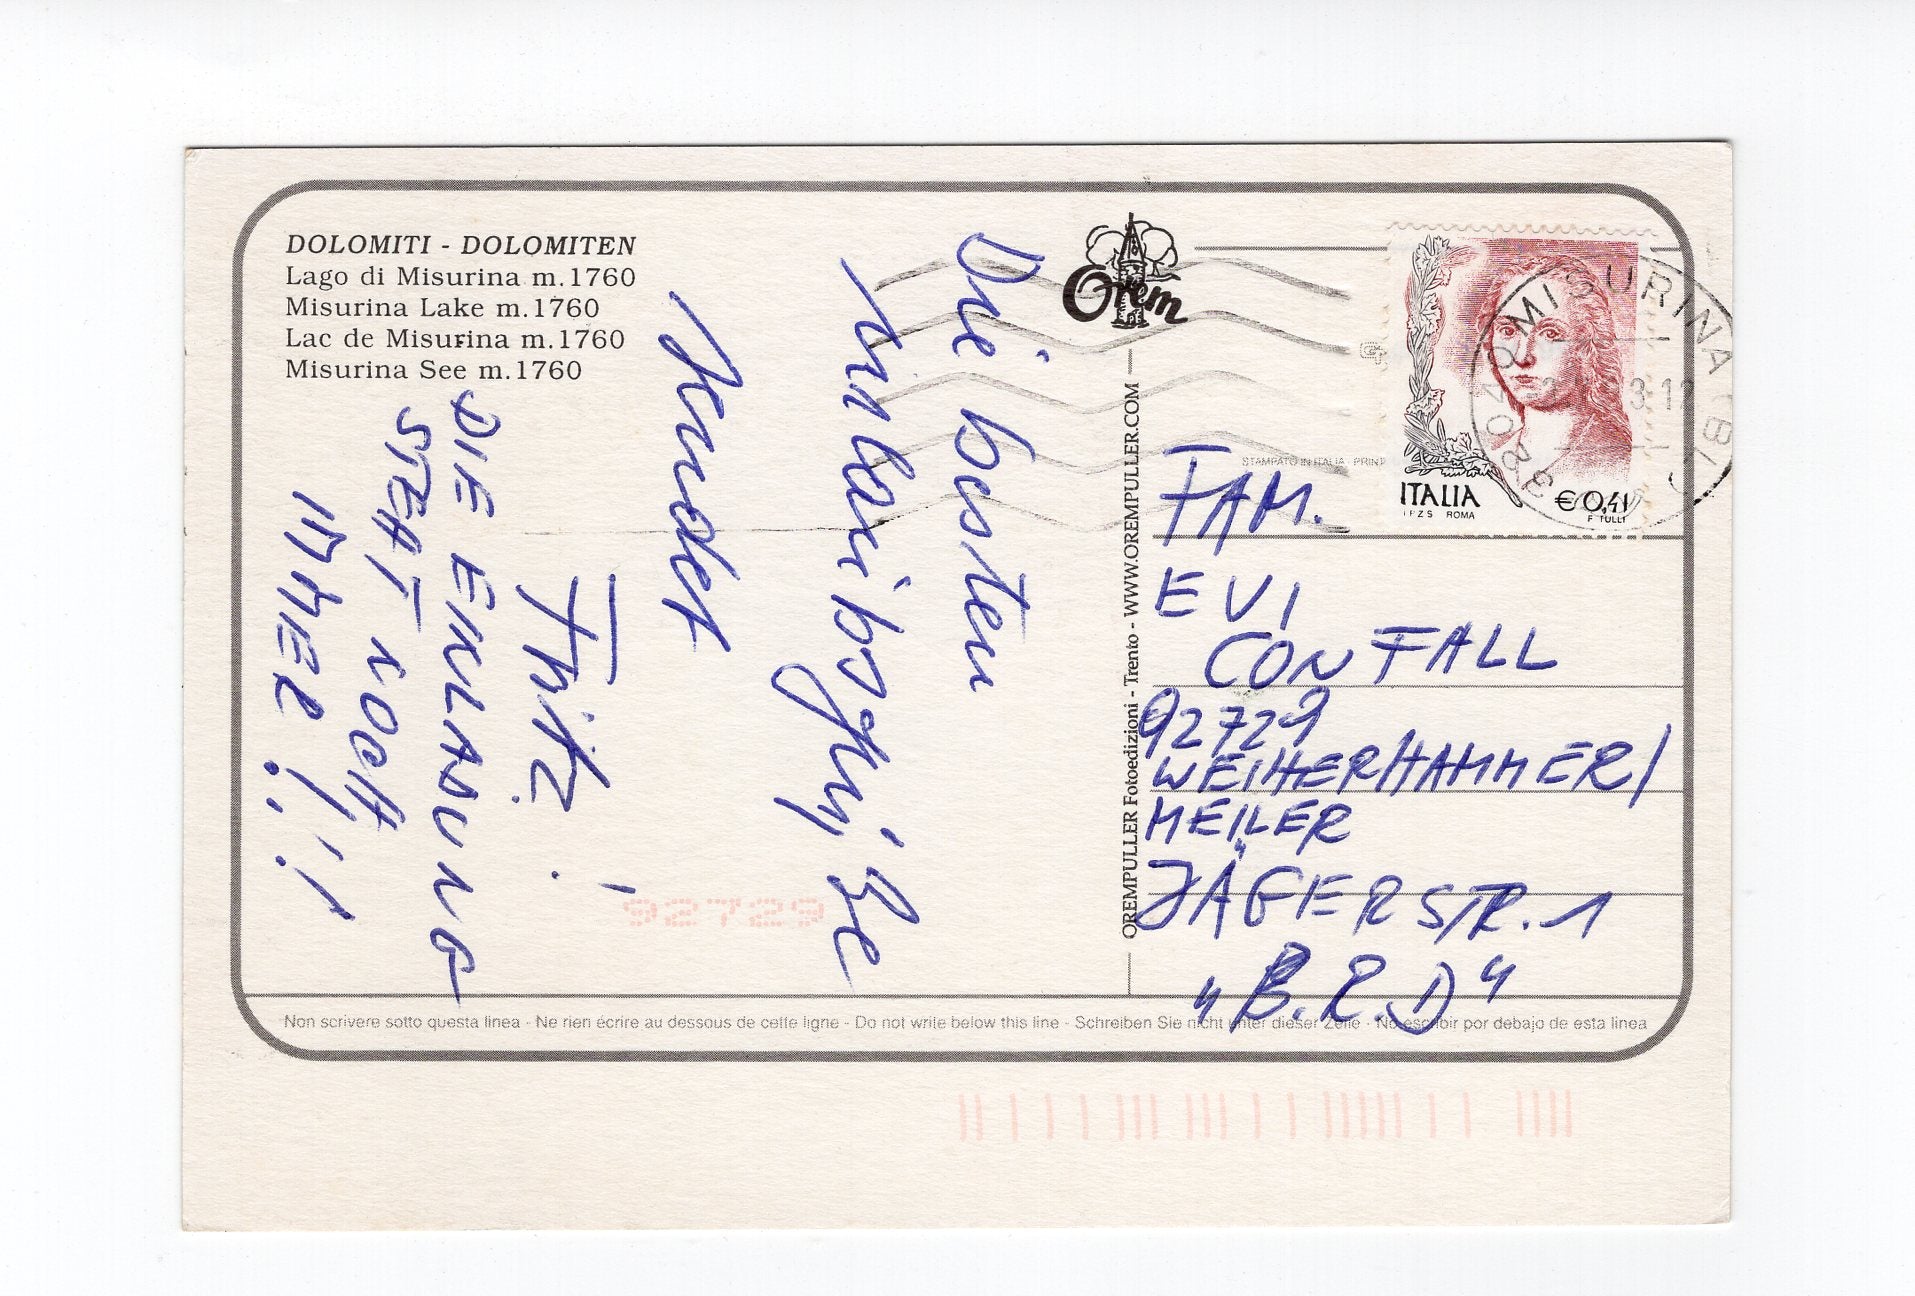 DOLOMITI - DOLOMITEN
Lago di Misurina m.1760
Misurina Lake m.1760
Lac de Misurina m.1760
Misurina See m.1760
Die besten
Urlaubsgrüße
sendet
Fritz!
DIE EINLADUNG
STEHT NOCH
IMMER!!!
92729
Orem
OREMPULLER Fotoedizioni - Trento - WWW.OREMPULLER.COM
STAMPATO IN ITALIA - PRIN
ITALIA
€0,41
I.P.Z.S. ROMA
F. TULLI
32040 MISURINA (BL)
FAM.
EVI
CONFALL
92729
WEIHERHAMMER/
MEILER
JÄGERSTR. 1
"B.R.D"
Non scrivere sotto questa linea - Ne rien écrire au dessous de cette ligne - Do not write below this line - Schreiben Sie nicht unter dieser Zeile - No escribir por debajo de esta linea